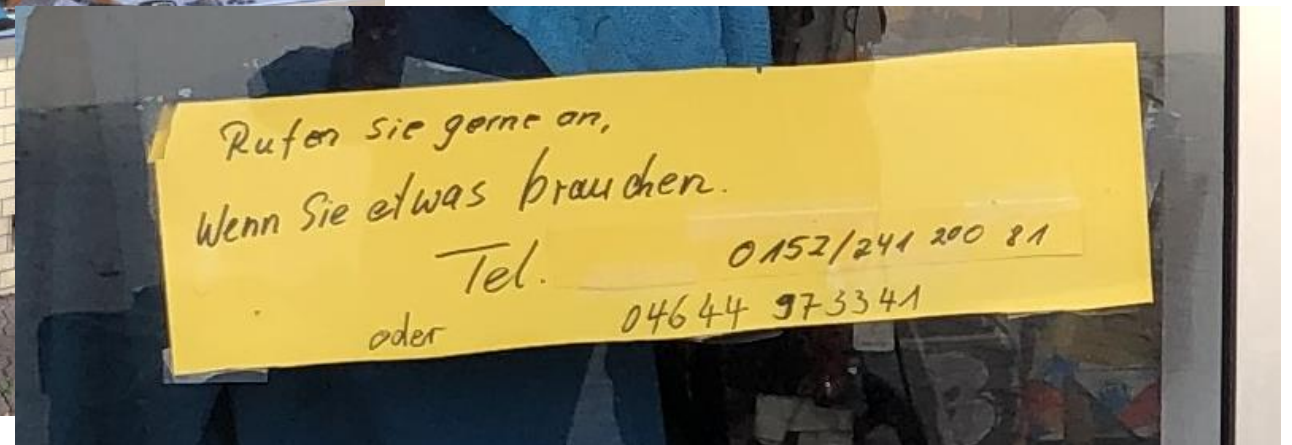 Rufen sie gerne an,
Wenn Sie etwas brauchen.
Tel. 0152/241 200 81
oder 04644 973341